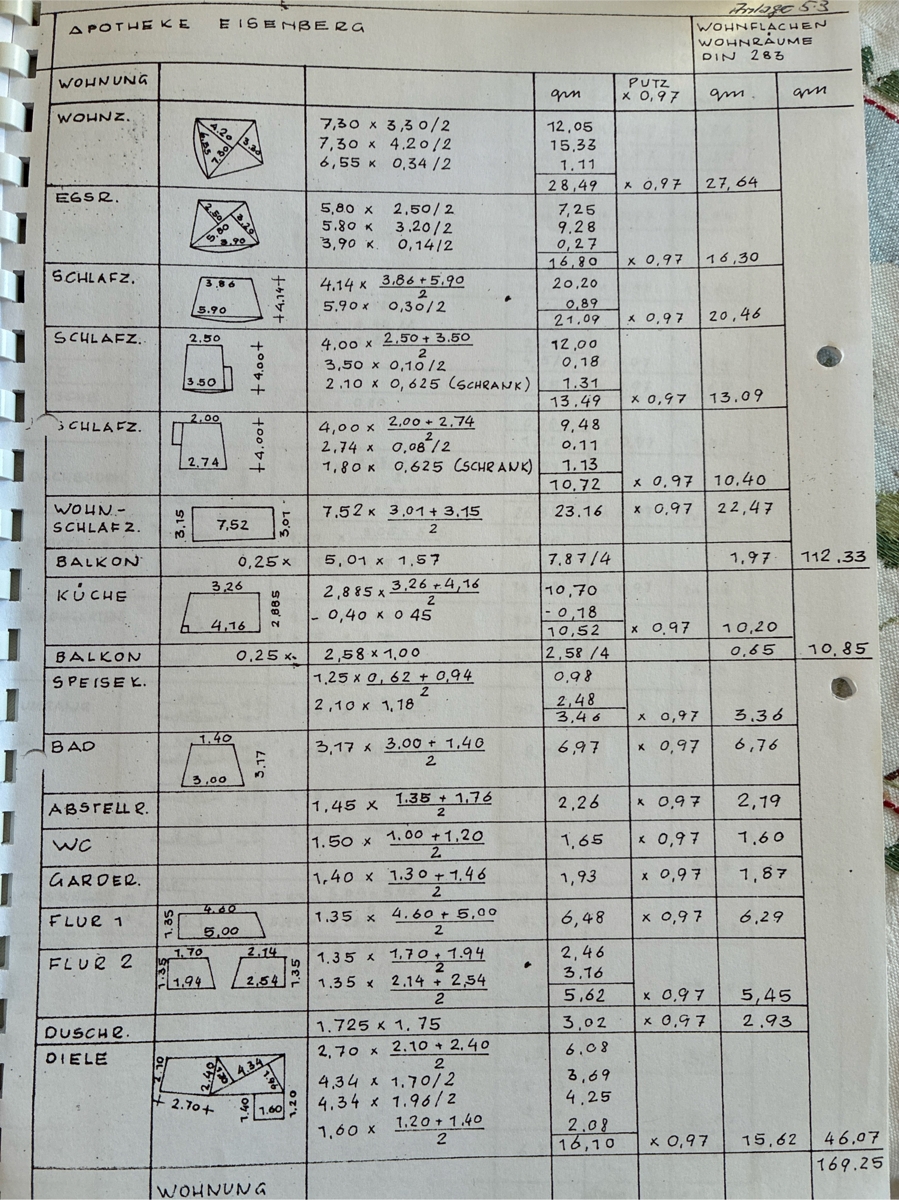 Anlage 5.3
APOTHEKE EISENBERG
WOHNFLÄCHEN
WOHNRÄUME
DIN 283
WOHNUNG qm PUTZ x 0,97 qm. qm
WOHNZ. 4.20 6.55 7.30 3.30 7,30 x 3,30/2 12,05
7,30 x 4.20/2 15,33
6,55 x 0,34/2 1.11
28,49 x 0,97 27,64
EßSR. 2.50 3.20 5.80 3.90 5,80 x 2,50/2 7,25
5.80 x 3.20/2 9,28
3,90 x 0,14/2 0,27
16,80 x 0,97 16,30
SCHLAFZ. 3.86 5.90 4.14 4.14 x 3,86 + 5,90 / 2 20,20
5.90 x 0,30/2 0,89
21,09 x 0,97 20,46
SCHLAFZ. 2.50 3.50 4.00 4,00 x 2,50 + 3.50 / 2 12,00
3,50 x 0,10/2 0,18
2.10 x 0,625 (SCHRANK) 1.31
13.49 x 0,97 13.09
SCHLAFZ. 2,00 2.74 4.00 4,00 x 2,00 + 2,74 / 2 9,48
2,74 x 0,08/2 0,11
1,80 x 0,625 (SCHRANK) 1,13
10,72 x 0,97 10,40
WOHN.- SCHLAFZ. 3.15 7,52 3,01 7.52 x 3,01 + 3,15 / 2 23.16 x 0,97 22,47
BALKON 0,25 x 5,01 x 1,57 7.87/4 1,97 112.33
KÜCHE 3,26 4,16 2,885 2,885 x 3,26 + 4,16 / 2 10,70
- 0,40 x 0 45 - 0,18
10,52 x 0,97 10,20
BALKON 0,25 x. 2,58 x 1,00 2,58 /4 0,65 10,85
SPEISEK. 1.25 x 0,62 + 0,94 / 2 0,98
2,10 x 1,18 2,48
3.46 x 0,97 3.36
BAD 1,40 3,00 3,17 3,17 x 3.00 + 1,40 / 2 6,97 x 0,97 6,76
ABSTELLR. 1,45 x 1.35 + 1,76 / 2 2,26 x 0,97 2,19
WC 1.50 x 1.00 + 1,20 / 2 1,65 x 0,97 1,60
GARDER. 1,40 x 1.30 + 1.46 / 2 1,93 x 0,97 1,87
FLUR 1 1.35 4.60 5,00 1.35 x 4.60 + 5,00 / 2 6,48 x 0,97 6,29
FLUR 2 1.35 1,70 1,94 2.14 2,54 1.35 1.35 x 1,70 + 1.94 / 2 2,46
1.35 x 2.14 + 2,54 / 2 3.16
5,62 x 0,97 5,45
DUSCHR. 1.725 x 1.75 3,02 x 0,97 2.93
DIELE 2.10 2.40 4.34 1.96 2.70 1.40 1.60 1.20 2,70 x 2.10 + 2.40 / 2 6.08
4,34 x 1,70/2 3,69
4.34 x 1.96/2 4,25
1,60 x 1.20 + 1.40 / 2 2,08
16,10 x 0,97 15,62 46,07
169.25
WOHNUNG